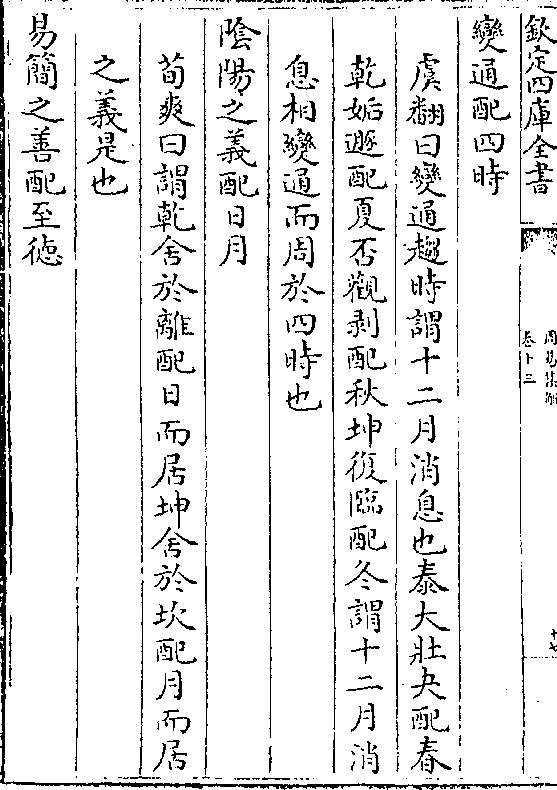 欽定四庫全書
周易集解
卷十三
十七
變通配四時
虞翻曰變通趨時謂十二月消息也泰大壯夬配春
乾姤遯配夏否觀剥配秋坤復臨配冬謂十二月消
息相變通而周於四時也
隂陽之義配日月
荀爽曰謂乾舍於離配日而居坤舍於坎配月而居
之義是也
易簡之善配至徳